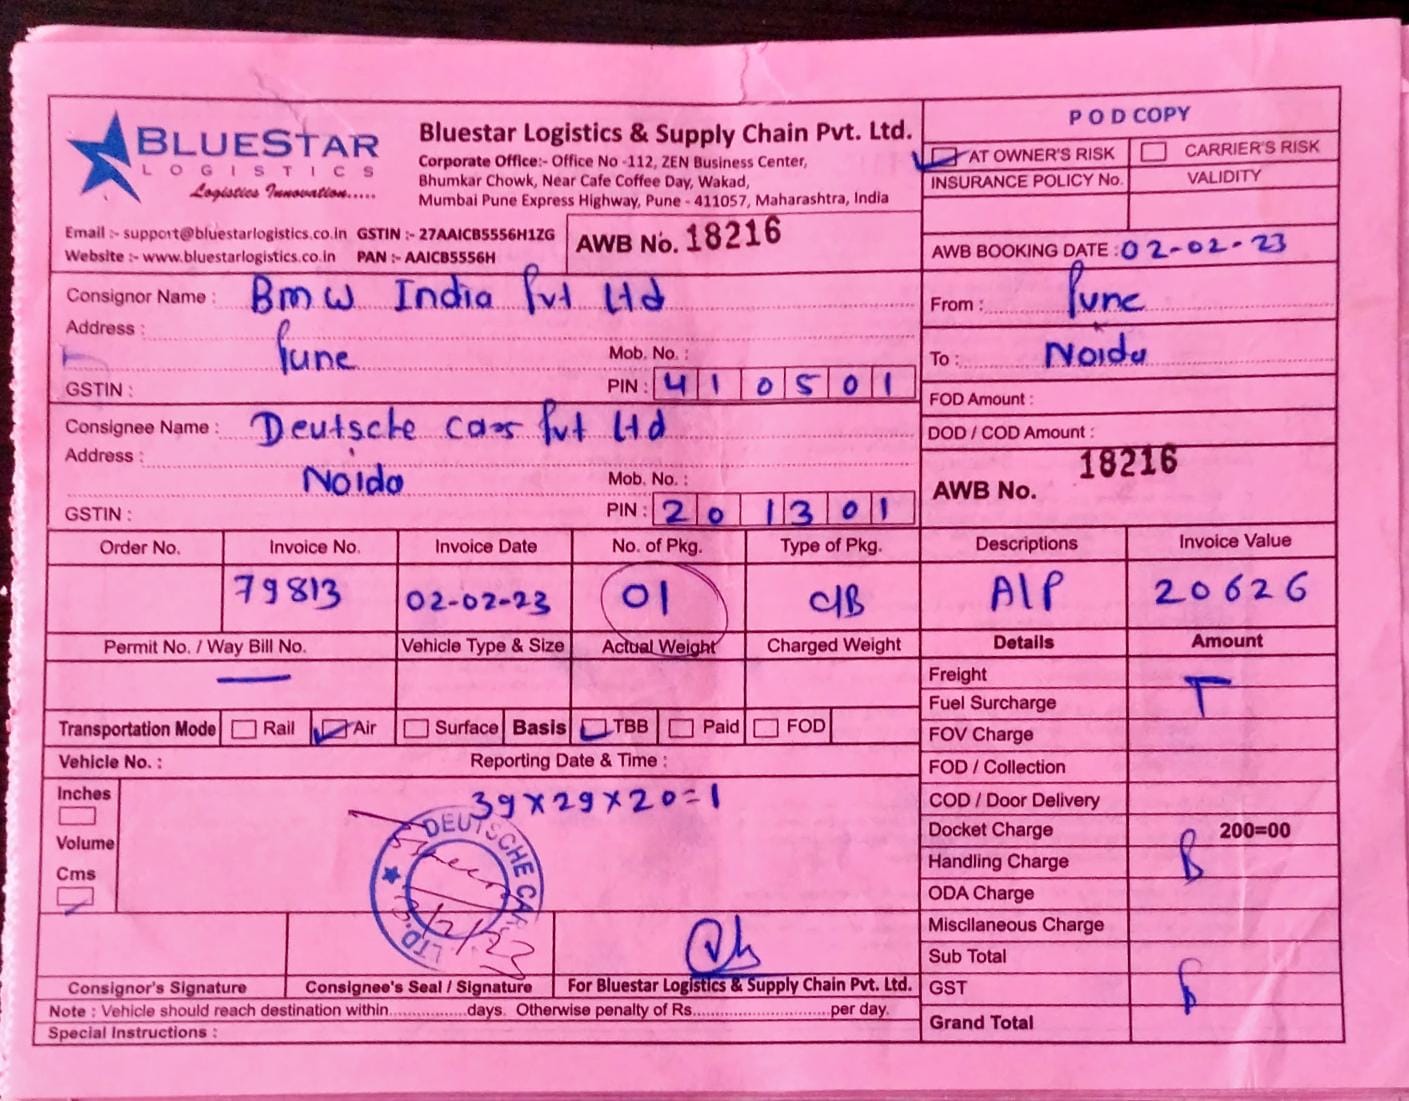 BLUESTAR
LOGISTICS
Logistics Innovation.....
Bluestar Logistics & Supply Chain Pvt. Ltd.
Corporate Office:- Office No -112, ZEN Business Center,
Bhumkar Chowk, Near Cafe Coffee Day, Wakad,
Mumbai Pune Express Highway, Pune - 411057, Maharashtra, India
Email :- support@bluestarlogistics.co.in GSTIN :- 27AAICB5556H1ZG
Website :- www.bluestarlogistics.co.in PAN :- AAICB5556H
AWB No. 18216
POD COPY
AT OWNER'S RISK CARRIER'S RISK
INSURANCE POLICY No. VALIDITY
AWB BOOKING DATE : 02-02-23
Consignor Name : Bmw India Pvt Ltd
Address :
Pune Mob. No. :
GSTIN : PIN : 410501
From : Pune
To : Noida
FOD Amount :
DOD / COD Amount :
AWB No. 18216
Consignee Name : Deutsche Cars Pvt Ltd
Address :
Noida Mob. No. :
GSTIN : PIN : 201301
Order No. Invoice No. Invoice Date No. of Pkg. Type of Pkg. Descriptions Invoice Value
79813 02-02-23 01 C/B A/P 20626
Permit No. / Way Bill No. Vehicle Type & Size Actual Weight Charged Weight Details Amount
Transportation Mode Rail Air Surface Basis TBB Paid FOD
Vehicle No. : Reporting Date & Time :
Inches
Volume
Cms
39x29x20=1
DEUTSCHE CARS
LTD.
Freight
T
Fuel Surcharge
FOV Charge
FOD / Collection
COD / Door Delivery
Docket Charge 200=00
Handling Charge B
ODA Charge
Miscllaneous Charge
Sub Total
GST
Grand Total
Consignor's Signature Consignee's Seal / Signature For Bluestar Logistics & Supply Chain Pvt. Ltd.
Note : Vehicle should reach destination within.................days. Otherwise penalty of Rs..............................per day.
Special Instructions :